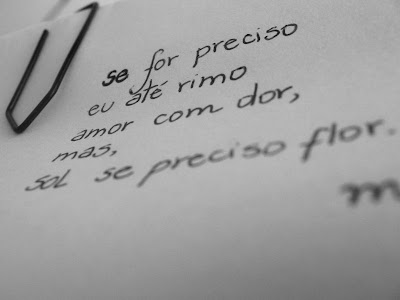 se for preciso
eu até rimo
amor com dor,
mas,
sol se preciso flor.
m